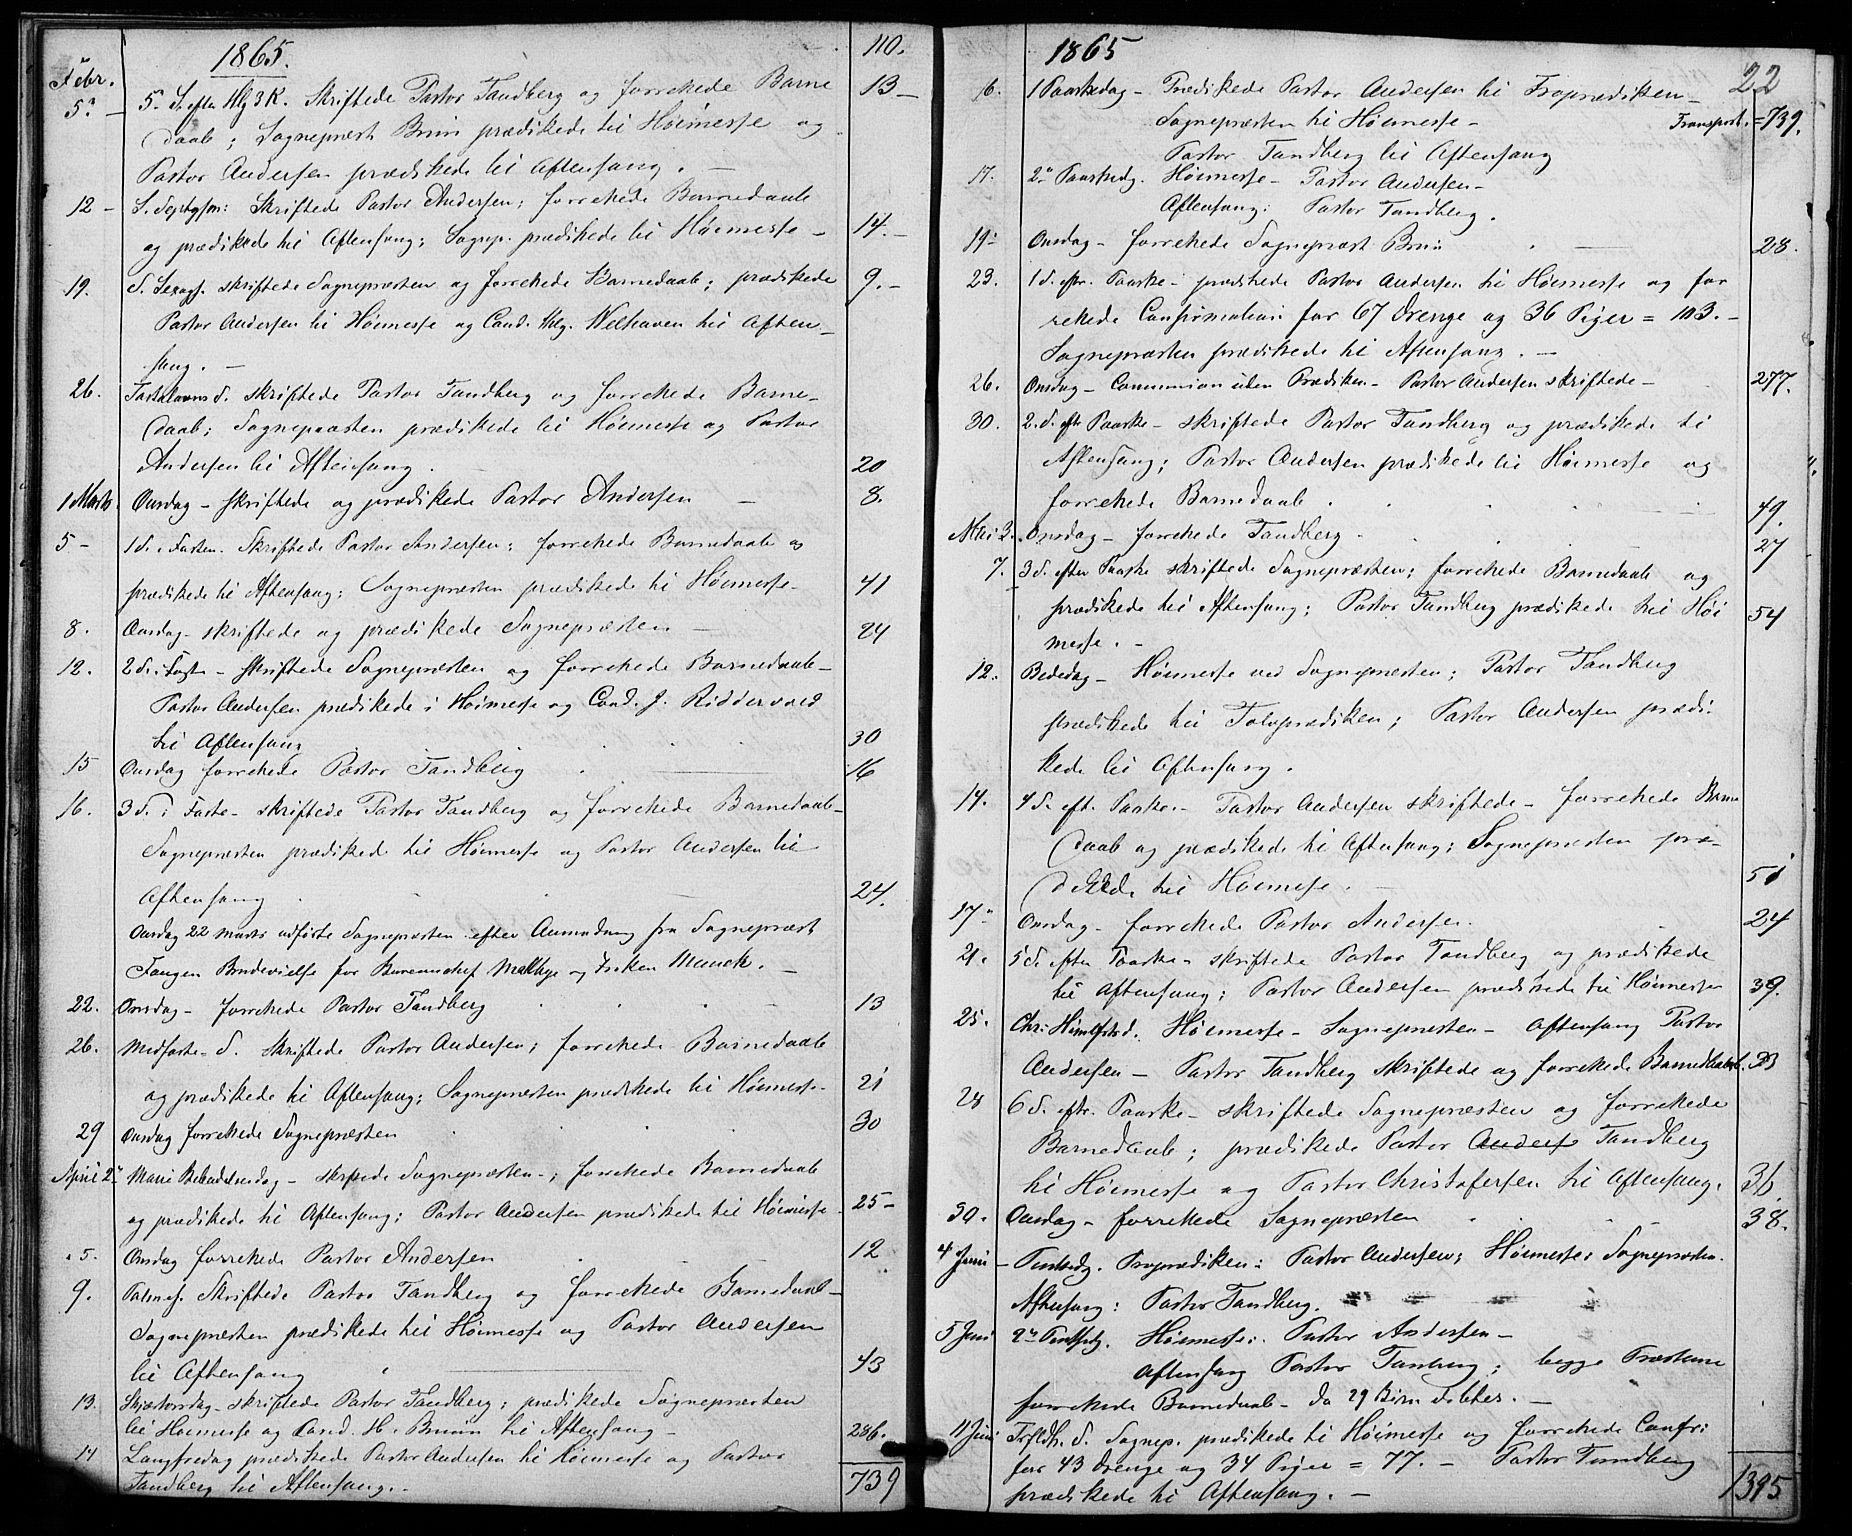 1865.
110.
Febr.
5. 5. S. efter Hlg 3 K. Skriftede Pastor Tandberg og forrettede Barne 13 -
daab; Sognepræst Bruun prædikede til Høimesse og
Pastor Andersen prædikede til Aftensang. -
12 - S. Septgsm: Skriftede Pastor Andersen; forrettede Barnedaab
og prædikede til Aftensang; Sognep. prædikede til Høimesse - 14. -
19. S. Sexags. skriftede Sognepræsten og forrettede Barnedaab; prædikede 9. -
Pastor Andersen til Høimesse og Cand. thlg. Welhaven til Aften-
sang. -
26. Fastelavns S. skriftede Pastor Tandberg og forrettede Barne-
daab; Sognepræsten prædikede til Høimesse og Pastor
Andersen til Aftensang. 20
1 Marts. Onsdag - skriftede og prædikede Pastor Andersen - 8.
5 - 1 S. i Fasten. Skriftede Pastor Andersen; forrettede Barnedaab og
prædikede til Aftensang; Sognepræsten prædikede til Høimesse - 41
8. Onsdag - skriftede og prædikede Sognepræsten - 24
12. 2 S. i Fast - skriftede Sognepræsten og forrettede Barnedaab -
Pastor Andersen prædikede i Høimesse og Cand. J. Riddervold
til Aftensang 30
15 Onsdag forrettede Pastor Tandberg 16
16. 3 S. i Faste - skriftede Pastor Tandberg og forrettede Barnedaab -
Sognepræsten prædikede til Høimesse og Pastor Andersen til
Aftensang 24.
Onsdag 22 marts udførte Sognepræsten efter Anmodning fra Sognepræst
Fangen Brudevielse for Bureauchef Malthe og Frøken Munch. -
22. Onsdag - forrettede Pastor Tandberg 13
26. Midfaste - S. skriftede Pastor Andersen; forrettede Barnedaab
og prædikede til Aftensang; Sognepræsten prædikede til Høimesse - 21
29 Onsdag forrettede Sognepræsten 30
April 2 Mariæ Bebudelsesdag - skriftede Sognepræsten -; forrettede Barnedaab
og prædikede til Aftensang; Pastor Andersen prædikede til Høimesse 25 -
5. Onsdag forrettede Pastor Andersen 12
9. Palmes. Skriftede Pastor Tandberg og forrettede Barnedaab -
Sognepræsten prædikede til Høimesse og Pastor Andersen
til Aftensang 43
13. Skjærtorsdag - skriftede Pastor Tandberg; prædikede Sognepræsten
til Høimesse og Cand. H. Bruun til Aftensang - 286.
14 Langfredag prædikede Pastor Andersen til Høimesse og Pastor
Tandberg til Aftensang. - 739
1865
22
16. 1 Paaskedag - Prædikede Pastor Andersen til Froprædiken -
Sognepræsten til Høimesse - Transport. = 739.
Pastor Tandberg til Aftensang
17. 2 Paaskedg. Høimesse - Pastor Andersen -
Aftensang: Pastor Tandberg.
19 Onsdag - forrettede Sognepræst Bruun - 28.
23. 1 S. eftr. Paaske - prædikede Pastor Andersen til Høimesse og for
rettede Confirmation for 67 Drenge og 36 Piger = 103. -
Sognepræsten prædikede til Aftensang. -
26. Onsdag - Communion uden Prædiken - Pastor Andersen skriftede - 277.
30. 2. S. eftr Paaske - skriftede Pastor Tandberg og prædikede til
Aftensang; Pastor Andersen prædikede til Høimesse og
forrettede Barnedaab. 49.
Mai 3. Onsdag - forrettede Tandberg. 27
7. 3 S. efter Paaske skriftede Sognepræsten; forrettede Barnedaab og
prædikede til Aftensang; Pastor Tandberg prædikede til Høi 54
messe. -
12. Bededag - Høimesse ved Sognepræsten; Pastor Tandberg
prædikede til Tolvprædiken; Pastor Andersen prædi-
kede til Aftensang.
14. 4 S. eft. Paaske. - Pastor Andersen skriftede - forrettede Barne
daab og prædikede til Aftensang; Sognepræsten præ-
dikede til Høimesse. - 51
17 Onsdag - forrettede Pastor Andersen. 24
21. 5 S. efter Paaske - skriftede Pastor Tandberg og prædikede
til Aftensang; Pastor Andersen prædikede til Høimesse 39.
25. Chr: Himlfrtsd. Høimesse - Sognepræsten - Aftensang Pastor
Andersen - Pastor Tandberg skriftede og forrettede Barnedaab. 33
28 6 S. eftr. Paaske - skriftede Sognepræsten og forrettede
Barnedaab; prædikede Pastor Anders Tandberg
til Høimesse og Pastor Christofersen til Aftensang. 36.
30. Onsdag - forrettede Sognepræsten 38.
4 Juni - Pintsedg. Froprædiken: Pastor Andersen; Høimesse: Sognepræsten.
Aftensang: Pastor Tandberg.
5 Juni 2 Pintsedg. Høimesse: Pastor Andersen -
Aftensang Pastor Tandberg; begge Præsterne
forrettede Barnedaab - da 29 Børn døbtes. -
11 Juni Trfldh. S. Sognep. prædikede til Høimesse og forrettede Confr:
for 43 Drenge og 34 Piger = 77. - Pastor Tandberg
prædikede til Aftensang. - 1395